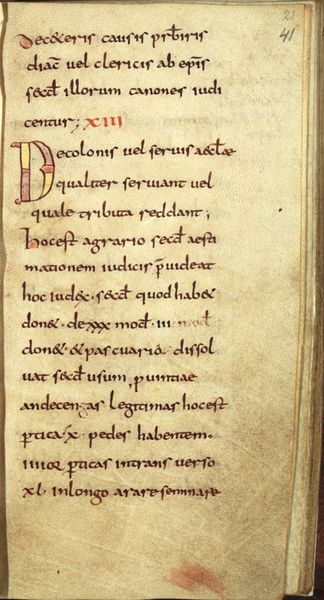 21
41
de c&eris causis prƀiris
diac̄ vel clericis ab ep̄is
secđ illorum canones iudi
centur; XIII
De colonis vel servis aeclae
qualiter serviant vel
quale tributa reddant;
hoc est agrario secđ aesti
mationem iudicis p̄videat
hoc iudex · secđ quod hab&
don& · de xxx mođ · iii mođ
don& · & pascuariū dissol
vat secđ usum p̱vintiae
andecengas legitimas hoc est
ꝑtica · x · pedes habentem ·
iiiior ꝑticas in trans verso
xl · in longo arare seminare